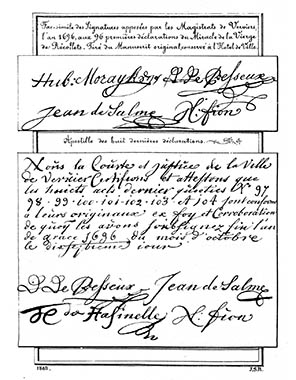 Facsimile des Signatures apposées par les Magistrats de Verviers,
l'an 1696, aux 96 premières déclarations du Miracle de la Vierge
des Récollets. Tiré du Manuscrit original conservé à l'Hotel de Ville.
Hub: Moray P. De Besseux
Jean de Salme H: fion
Apostille des huit dernières déclarations.
Nous la Courte et justice de la Ville
de Vervier Certifions et attestons que
les huict acts dernier N° 97
98 - 99 - 100 - 101 - 102 - 103 et 104 sont conform
à leurs originaux en foy et Corroboration
de quoy les avons soubsignez ſin l'an
de grace 1696 du mois d'octobre
le dixseptieme jour
P. De Besseux Jean de Salme
de Hasinelle H: fion
1849.
J.S.R.